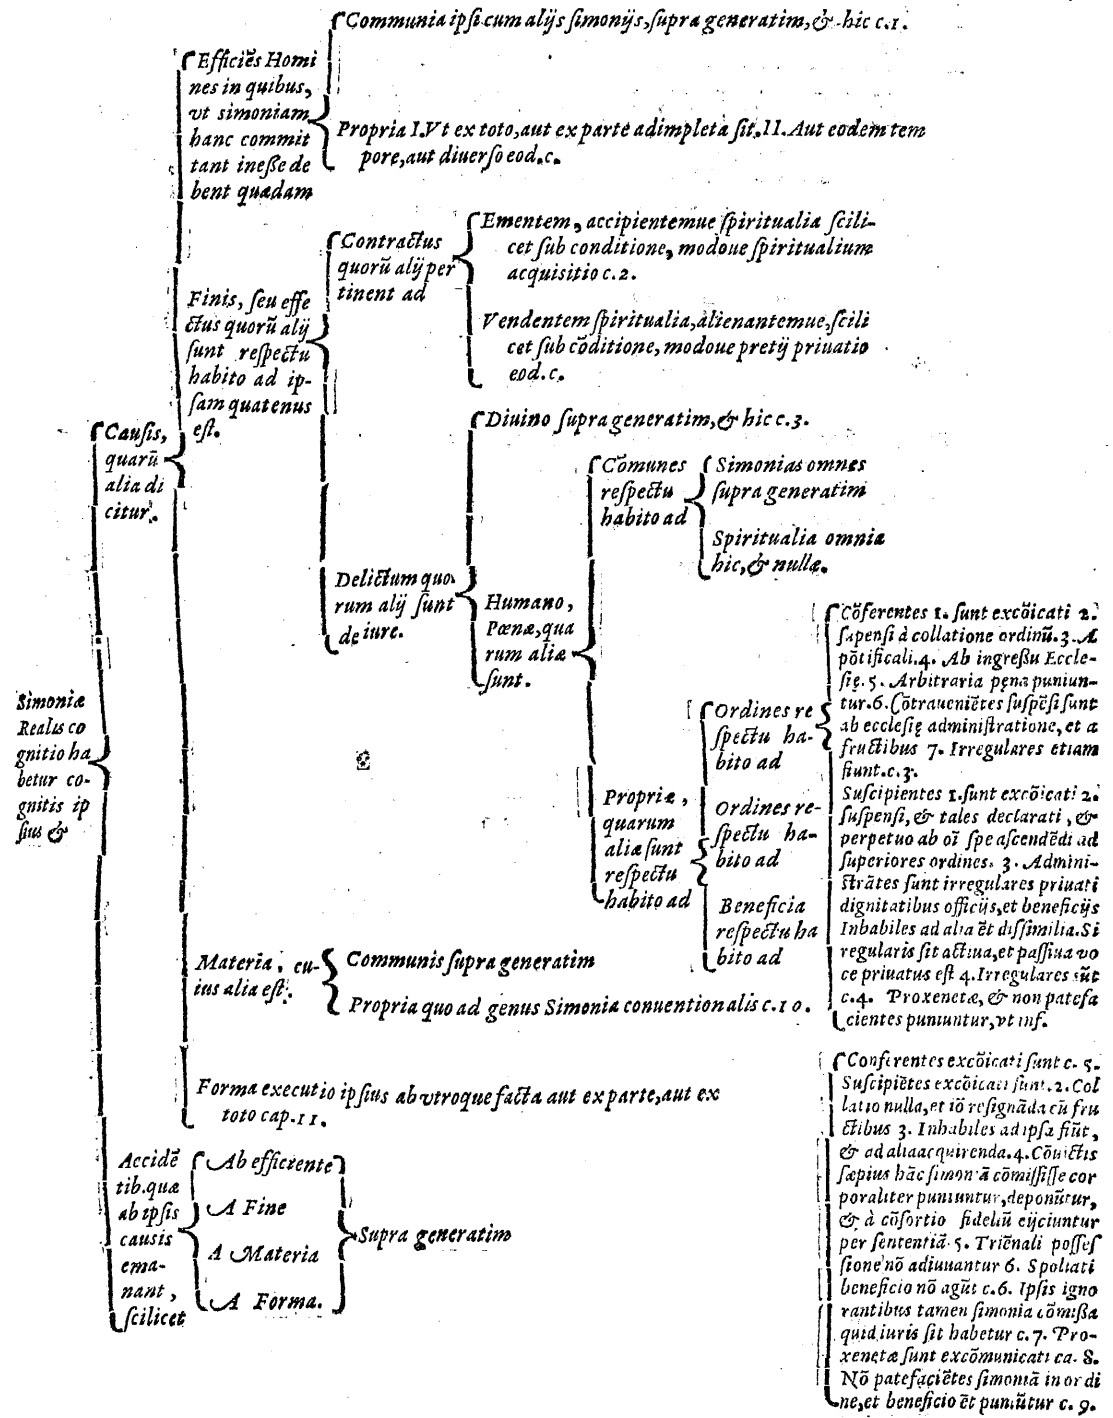 Simoniæ
Realis co
gnitio ha
betur co-
gnitis ip
sius &
Causis,
quarũ
alia di
citur.
Efficiẽs Homi
nes in quibus,
vt simoniam
hanc commit
tant inesse de
bent quædam
Communia ipsi cum alijs simonijs, supra generatim, & hic c.1.
Propria I. Vt ex toto, aut ex parte adimpleta sit. II. Aut eodem tem
pore, aut diuerso eod. c.
Finis, seu effe
ctus quorũ alij
sunt respectu
habito ad ip-
sam quatenus
est.
Contractus
quorũ alij per
tinent ad
Ementem, accipientemue spiritualia scili-
cet sub conditione, modoue spiritualium
acquisitio c. 2.
Vendentem spiritualia, alienantemue, scili
cet sub cõditione, modoue pretij priuatio
eod. c.
Delictum quo-
rum alij sunt
de iure.
Diuino supra generatim, & hic c. 3.
Humano,
Pœnæ, qua
rum aliæ
sunt.
Cõmunes
respectu
habito ad
Simonias omnes
supra generatim
Spiritualia omnia
hic, & nullæ.
Propriæ,
quarum
aliæ sunt
respectu
habito ad
Ordines re
spectu ha-
bito ad
Cõferentes 1. sunt excõicati 2.
suspensi à collatione ordinũ. 3. A
põtificali. 4. Ab ingressu Eccle-
się. 5. Arbitraria pęna puniun-
tur. 6. Cõtraueniẽtes suspẽsi sunt
ab ecclesię administratione, et a
fructibus 7. Irregulares etiam
fiunt. c. 3.
Suscipientes 1. sunt excõicati 2.
suspensi, & tales declarati, &
perpetuo ab oĩ spe ascendẽdi ad
superiores ordines. 3. Admini-
strãtes sunt irregulares priuati
dignitatibus officijs, et beneficijs
Inhabiles ad alia ẽt dissimilia. Si
regularis sit actiua, et passiua vo
ce priuatus est 4. Irregulares sũt
c. 4. Proxenetæ, & non patefa
cientes puniuntur, vt inf.
Ordines re-
spectu ha-
bito ad
Beneficia
respectu ha
bito ad
Conferentes excõicati sunt c. 5.
Suscipiẽtes excõicati sunt. 2. Col
latio nulla, et iõ resignãda cũ fru
ctibus 3. Inhabiles ad ipsa fiũt,
& ad alia acquirenda. 4. Cõuictis
sæpius hãc simoniã cõmississe cor
poraliter puniuntur, deponũtur,
& à cõsortio fideliũ eijciuntur
per sententiã. 5. Triẽnali posses
sione nõ adiuuantur 6. Spoliati
beneficio nõ agũt c. 6. Ipsis igno
rantibus tamen simonia cõmissa
quid iuris sit habetur c. 7. Pro-
xenetæ sunt excõmunicati ca. 8.
Nõ patefaciẽtes simoniã in ordi
ne, et beneficio ẽt puniũtur c. 9.
Materia, cu-
ius alia est.
Communis supra generatim
Propria quo ad genus Simonia conuentionalis c. 10.
Forma executio ipsius ab vtroque facta aut ex parte, aut ex
toto cap. 11.
Accidẽ
tib. quæ
ab ipsis
causis
ema-
nant,
scilicet
Ab efficiente
A Fine
A Materia
A Forma.
Supra generatim